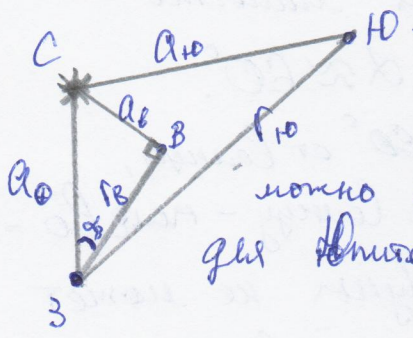 С
aю
Ю
aв
В
a⊕
rв
rю
α
З
можно
для Юпит